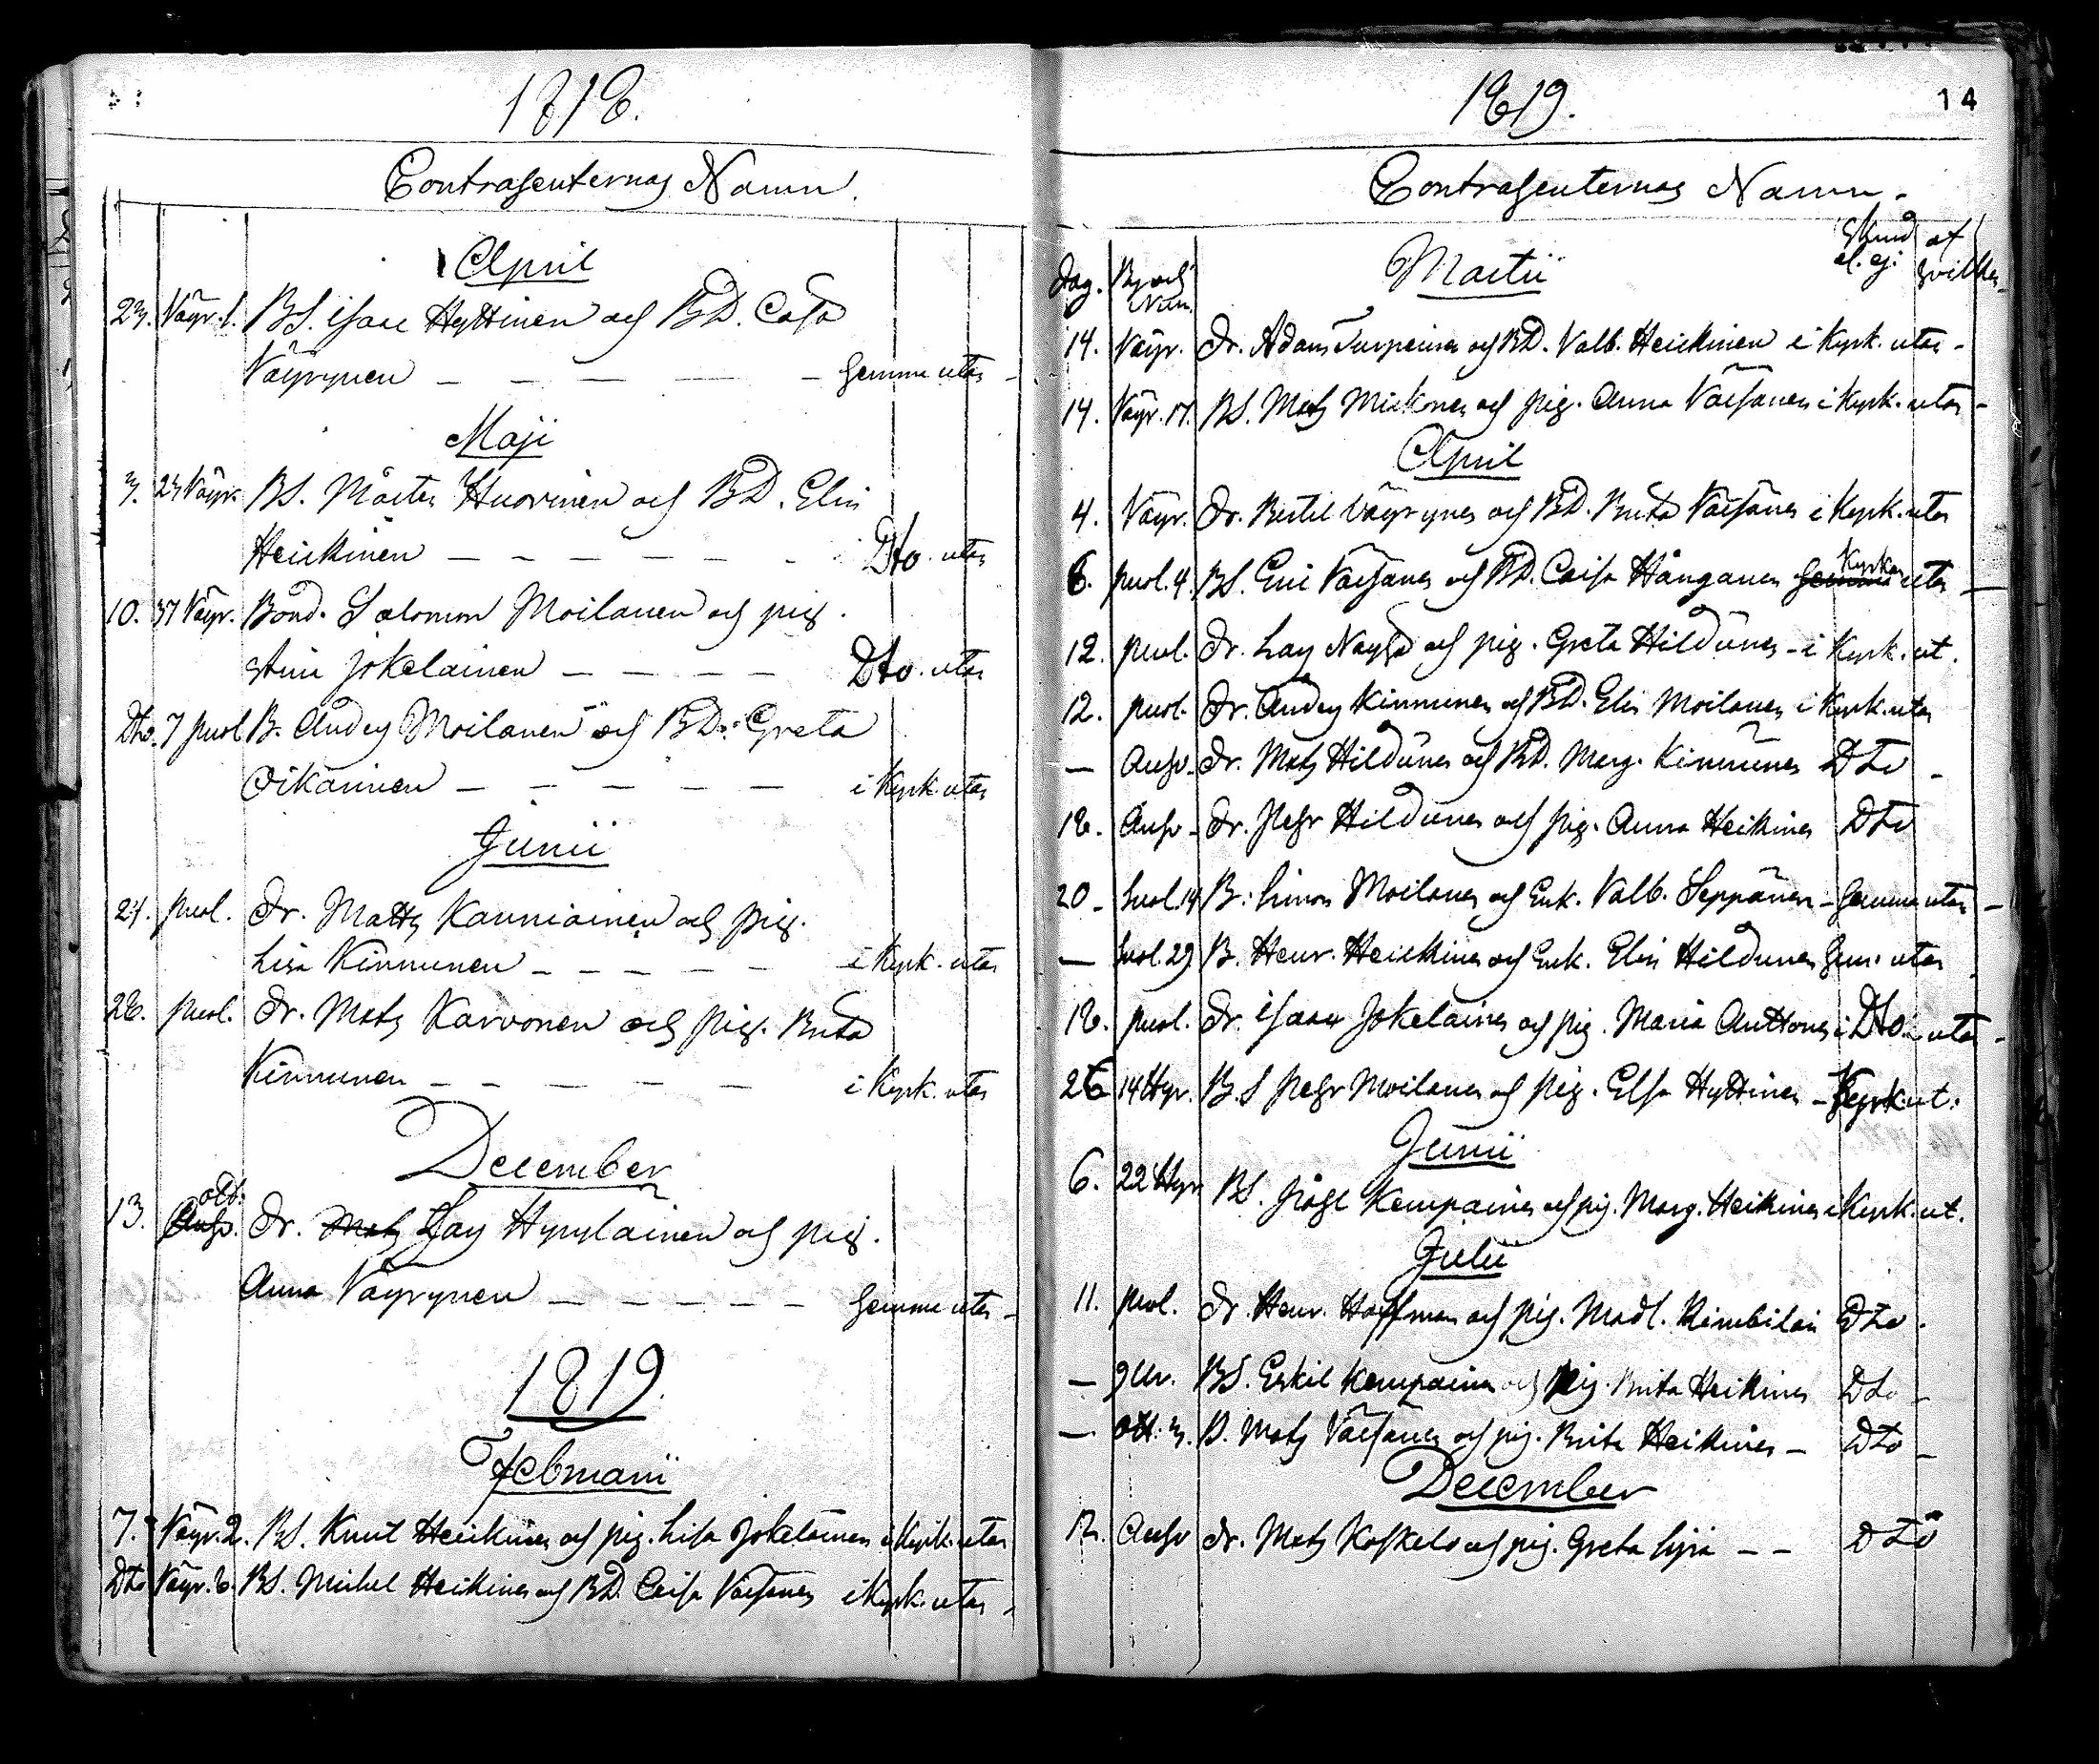 1818.
Contrahenternas Namn.
April
23. Väyr. 1. BS. Isaac Hyttinen och BD. Caisa
Väyrynen — — — — — hemma utan —
Maji
3. 23 Väyr. BS. Mårten Huovinen och BD. Elin
Heickinen — — — — — — Dto. utan
10. 37 Väyr. Bond. Salomon Moilanen och pig.
Anna Jokelainen — — — — Dto. utan
Dto. 7 puol B. Anders Moilanen och BD. Greta
Oikarinen — — — — — — i Kyrk. utan
Junii
24. puol. Dr. Matts Kauniainen och pig.
Lisa Kinnunen — — — — — i Kyrk. utan
28. puol. Dr. Mats Karvonen och pig. Brita
Kinnunen — — — — — — i Kyrk. utan
December
13. Dr. Hyrylainen och pig.
Anna Väyrynen — — — — — hemma utan —
1819.
Februarii
7. Väyr. 2. BS. Knut Heickinen och pig. Lisa Jokelainen i Kyrk. utan
Dto Väyr. 6. BS. Michel Heikinen och BD. Caisa Väisänen i Kyrk. utan
1819.
14
Contrahenternas Namn.
Dag. By och Num. Martii af hvilken
14. Väyr. Dr. Adam Turpeinen och BD. Valb. Heickinen i Kyrk. utan —
14. Väyr. 17. BS. Mats Mickonen och pig. Anna Väisänen i Kyrk. utan —
April
4. Väyr. Dr. Bertil Väyrynen och BD. Brita Väisänen i Kyrk. utan
6. puol. 4. BS. Eric Väisänen och BD. Caisa Hånganen hemma Kyrkan utan —
12. puol. Dr. och pig. Greta Hildunen — i Kyrk. ut.
12. puol. Dr. Anders Kinnunen och BD. Elin Moilanen i Kyrk. utan
— Dr. Mats Hildunen och BD. Marg. Kinnunen Dto —
18. Dr. Pehr Hildunen och pig. Anna Heikinen Dto
20 — 14 B. Simon Moilanen och Enk. Valb. Seppänen — hemma utan —
— 29 B. Henr. Heickinen och Enk. Elin Hildunen hem. utan
18. puol. Dr. Isaac Jokelainen och pig. Maria Anttonen i Dto utan —
26 14 Hyr. B.S Pehr Moilanen och pig. Elsa Hyttinen — Kyrk. ut.
Junii
6. 22 Hyr. BS. Kempainen och pig. Marg. Heikinen i Kyrk. ut.
Julii
11. puol. Dr. Henr. Hoffman och pig. Madl. Dto.
— BS. Eskil Kempainen och pig. Brita Heikinen Dto —
— 3. B. Mats Väisänen och pig. Brita Heikinen — Dto —
December
Dr. Mats Koskelo och pig. Greta — — Dto